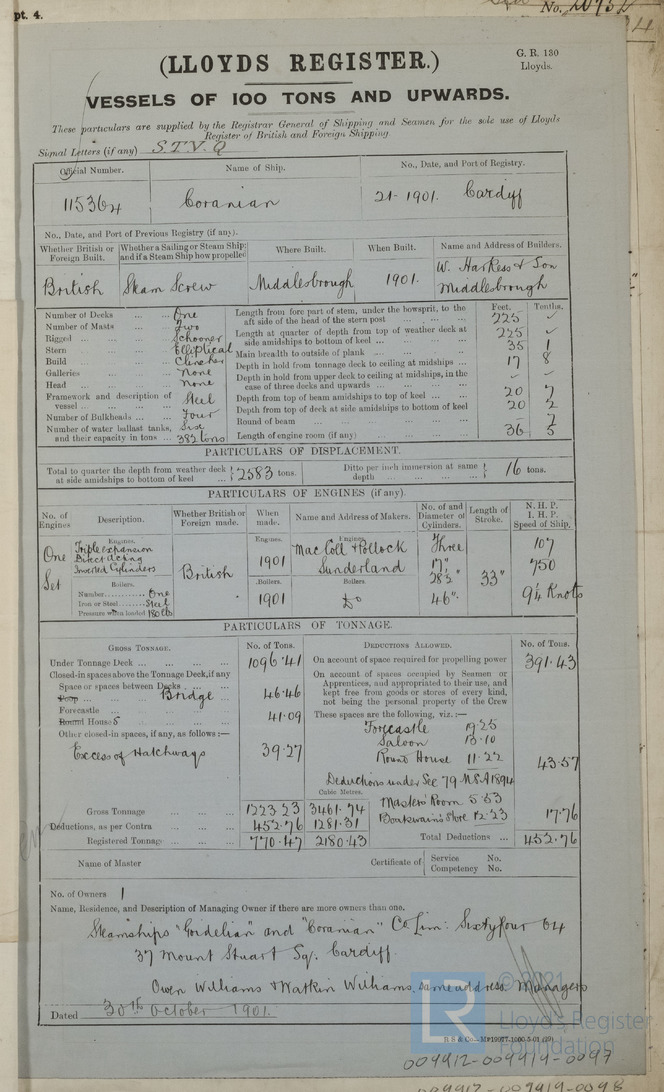 pt. 4.
No. 20952
(LLOYDS REGISTER.)
G. R. 130
Lloyds.
VESSELS OF 100 TONS AND UPWARDS.
These particulars are supplied by the Registrar General of Shipping and Seamen for the sole use of Lloyds
Register of British and Foreign Shipping
Signal Letters (if any) S.T.V.Q
Official Number. Name of Ship. No., Date, and Port of Registry.
115364 Coranian 21-1901. Cardiff
No., Date, and Port of Previous Registry (if any).
Whether British or Foreign Built. Whether a Sailing or Steam Ship; and if a Steam Ship how propelled Where Built. When Built. Name and Address of Builders.
British Steam Screw Middlesbrough 1901. W. Harkess & Son Middlesbrough
Number of Decks ... ... One
Number of Masts ... ... Two
Rigged ... ... Schooner
Stern ... ... Elliptical
Build ... ... Clincher
Galleries ... ... None
Head ... ... None
Framework and description of vessel ... ... Steel
Number of Bulkheads ... ... Four
Number of water ballast tanks, and their capacity in tons ... Six 382 tons
Feet. Tenths.
Length from fore part of stem, under the bowsprit, to the aft side of the head of the stern post 225 -
Length at quarter of depth from top of weather deck at side amidships to bottom of keel ... 225 -
Main breadth to outside of plank ... 35 1
Depth in hold from tonnage deck to ceiling at midships ... 17 8
Depth in hold from upper deck to ceiling at midships, in the case of three decks and upwards ... - -
Depth from top of beam amidships to top of keel ... 20 7
Depth from top of deck at side amidships to bottom of keel 20 2
Round of beam - 7
Length of engine room (if any) 36 5
PARTICULARS OF DISPLACEMENT.
Total to quarter the depth from weather deck at side amidships to bottom of keel ... 2583 tons. Ditto per inch immersion at same depth ... 16 tons.
PARTICULARS OF ENGINES (if any).
No. of Engines Description. Whether British or Foreign made. When made. Name and Address of Makers. No. of and Diameter of Cylinders. Length of Stroke. N. H. P. I. H. P. Speed of Ship.
One Set
Engines.
Triple expansion
Direct acting
Inverted Cylinders
British
Engines.
1901
Engines.
MacColl & Pollock
Sunderland
Three
17"
28½"
46"
33"
107
750
9¼ Knots
Boilers.
Number One
Iron or Steel Steel
Pressure when loaded 180 lbs
Boilers.
1901
Boilers.
Do
PARTICULARS OF TONNAGE.
GROSS TONNAGE. No. of Tons. DEDUCTIONS ALLOWED. No. of Tons.
Under Tonnage Deck ... 1096.41
Closed-in spaces above the Tonnage Deck, if any
Space or spaces between Decks ...
Poop Bridge 46.46
Forecastle ...
Round House S 41.09
Other closed-in spaces, if any, as follows:—
Excess of Hatchways 39.27
On account of space required for propelling power 391.43
On account of spaces occupied by Seamen or Apprentices, and appropriated to their use, and kept free from goods or stores of every kind, not being the personal property of the Crew
These spaces are the following, viz.:—
Forecastle 19.25
Saloon 13.10
Round House 11.22
43.57
Deductions under Sec 79 M.S.A 1894
Cubic Metres.
Master Room 5.53
Boatswain's Store 12.23
17.76
Gross Tonnage 1223.23 3461.74
Deductions, as per Contra 452.76 1281.31
Registered Tonnage 770.47 2180.43
Total Deductions ... 452.76
Name of Master Certificate of Service No. Competency No.
No. of Owners 1
Name, Residence, and Description of Managing Owner if there are more owners than one.
Steamships "Gordelian" and "Coranian" Co Lim: Sixtyfour 64
37 Mount Stuart Sq. Cardiff.
Owen Williams & Watkin Williams, same address. Managers
Dated 30th October 1901.
© 2021
LR
Lloyd's Register
Foundation
009912-009919-0097
009912-009919-0098